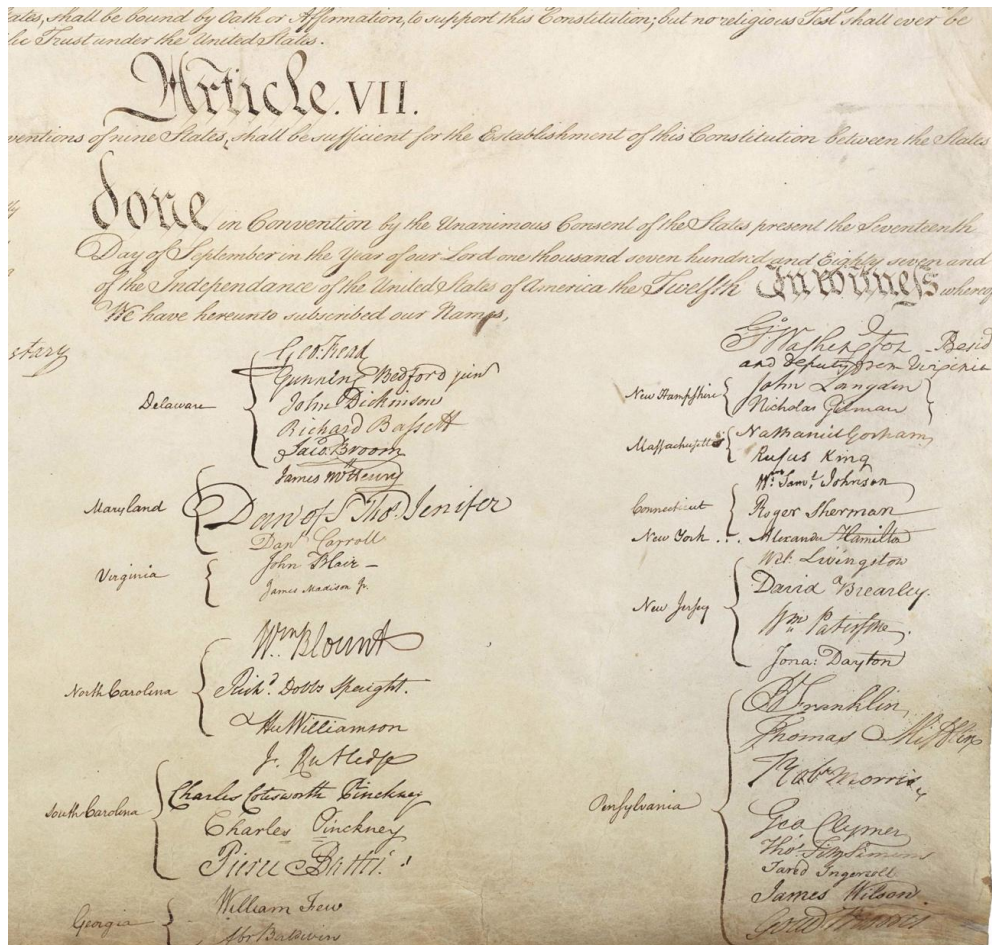 ates, shall be bound by Oath or Affirmation, to support this Constitution; but no religious Test shall ever be
lic Trust under the United States.
Article. VII.
ventions of nine States, shall be sufficient for the Establishment of this Constitution between the States
done in Convention by the Unanimous Consent of the States present the Seventeenth
Day of September in the Year of our Lord one thousand seven hundred and Eighty seven and
of the Independance of the United States of America the Twelfth In witness whereof
We have hereunto subscribed our Names,
etary
Delaware
Geo: Read
Gunning Bedford jun
John Dickinson
Richard Bassett
Jaco: Broom
Maryland
James McHenry
Dan of St Thos. Jenifer
Danl Carroll
Virginia
John Blair —
James Madison Jr.
North Carolina
Wm Blount
Richd. Dobbs Spaight.
Hu Williamson
South Carolina
J. Rutledge
Charles Cotesworth Pinckney
Charles Pinckney
Pierce Butler.
Georgia
William Few
Abr Baldwin
Go. Washington Presid
and deputy from Virginia
New Hampshire
John Langdon
Nicholas Gilman
Massachusetts
Nathaniel Gorham
Rufus King
Connecticut
Wm. Saml. Johnson
Roger Sherman
New York . . . Alexander Hamilton
New Jersey
Wil: Livingston
David Brearley.
Wm Paterson.
Jona: Dayton
Pensylvania
B Franklin
Thomas Mifflin
Robt Morris
Geo Clymer
Thos. FitzSimons
Jared Ingersoll
James Wilson
Gouv Morris